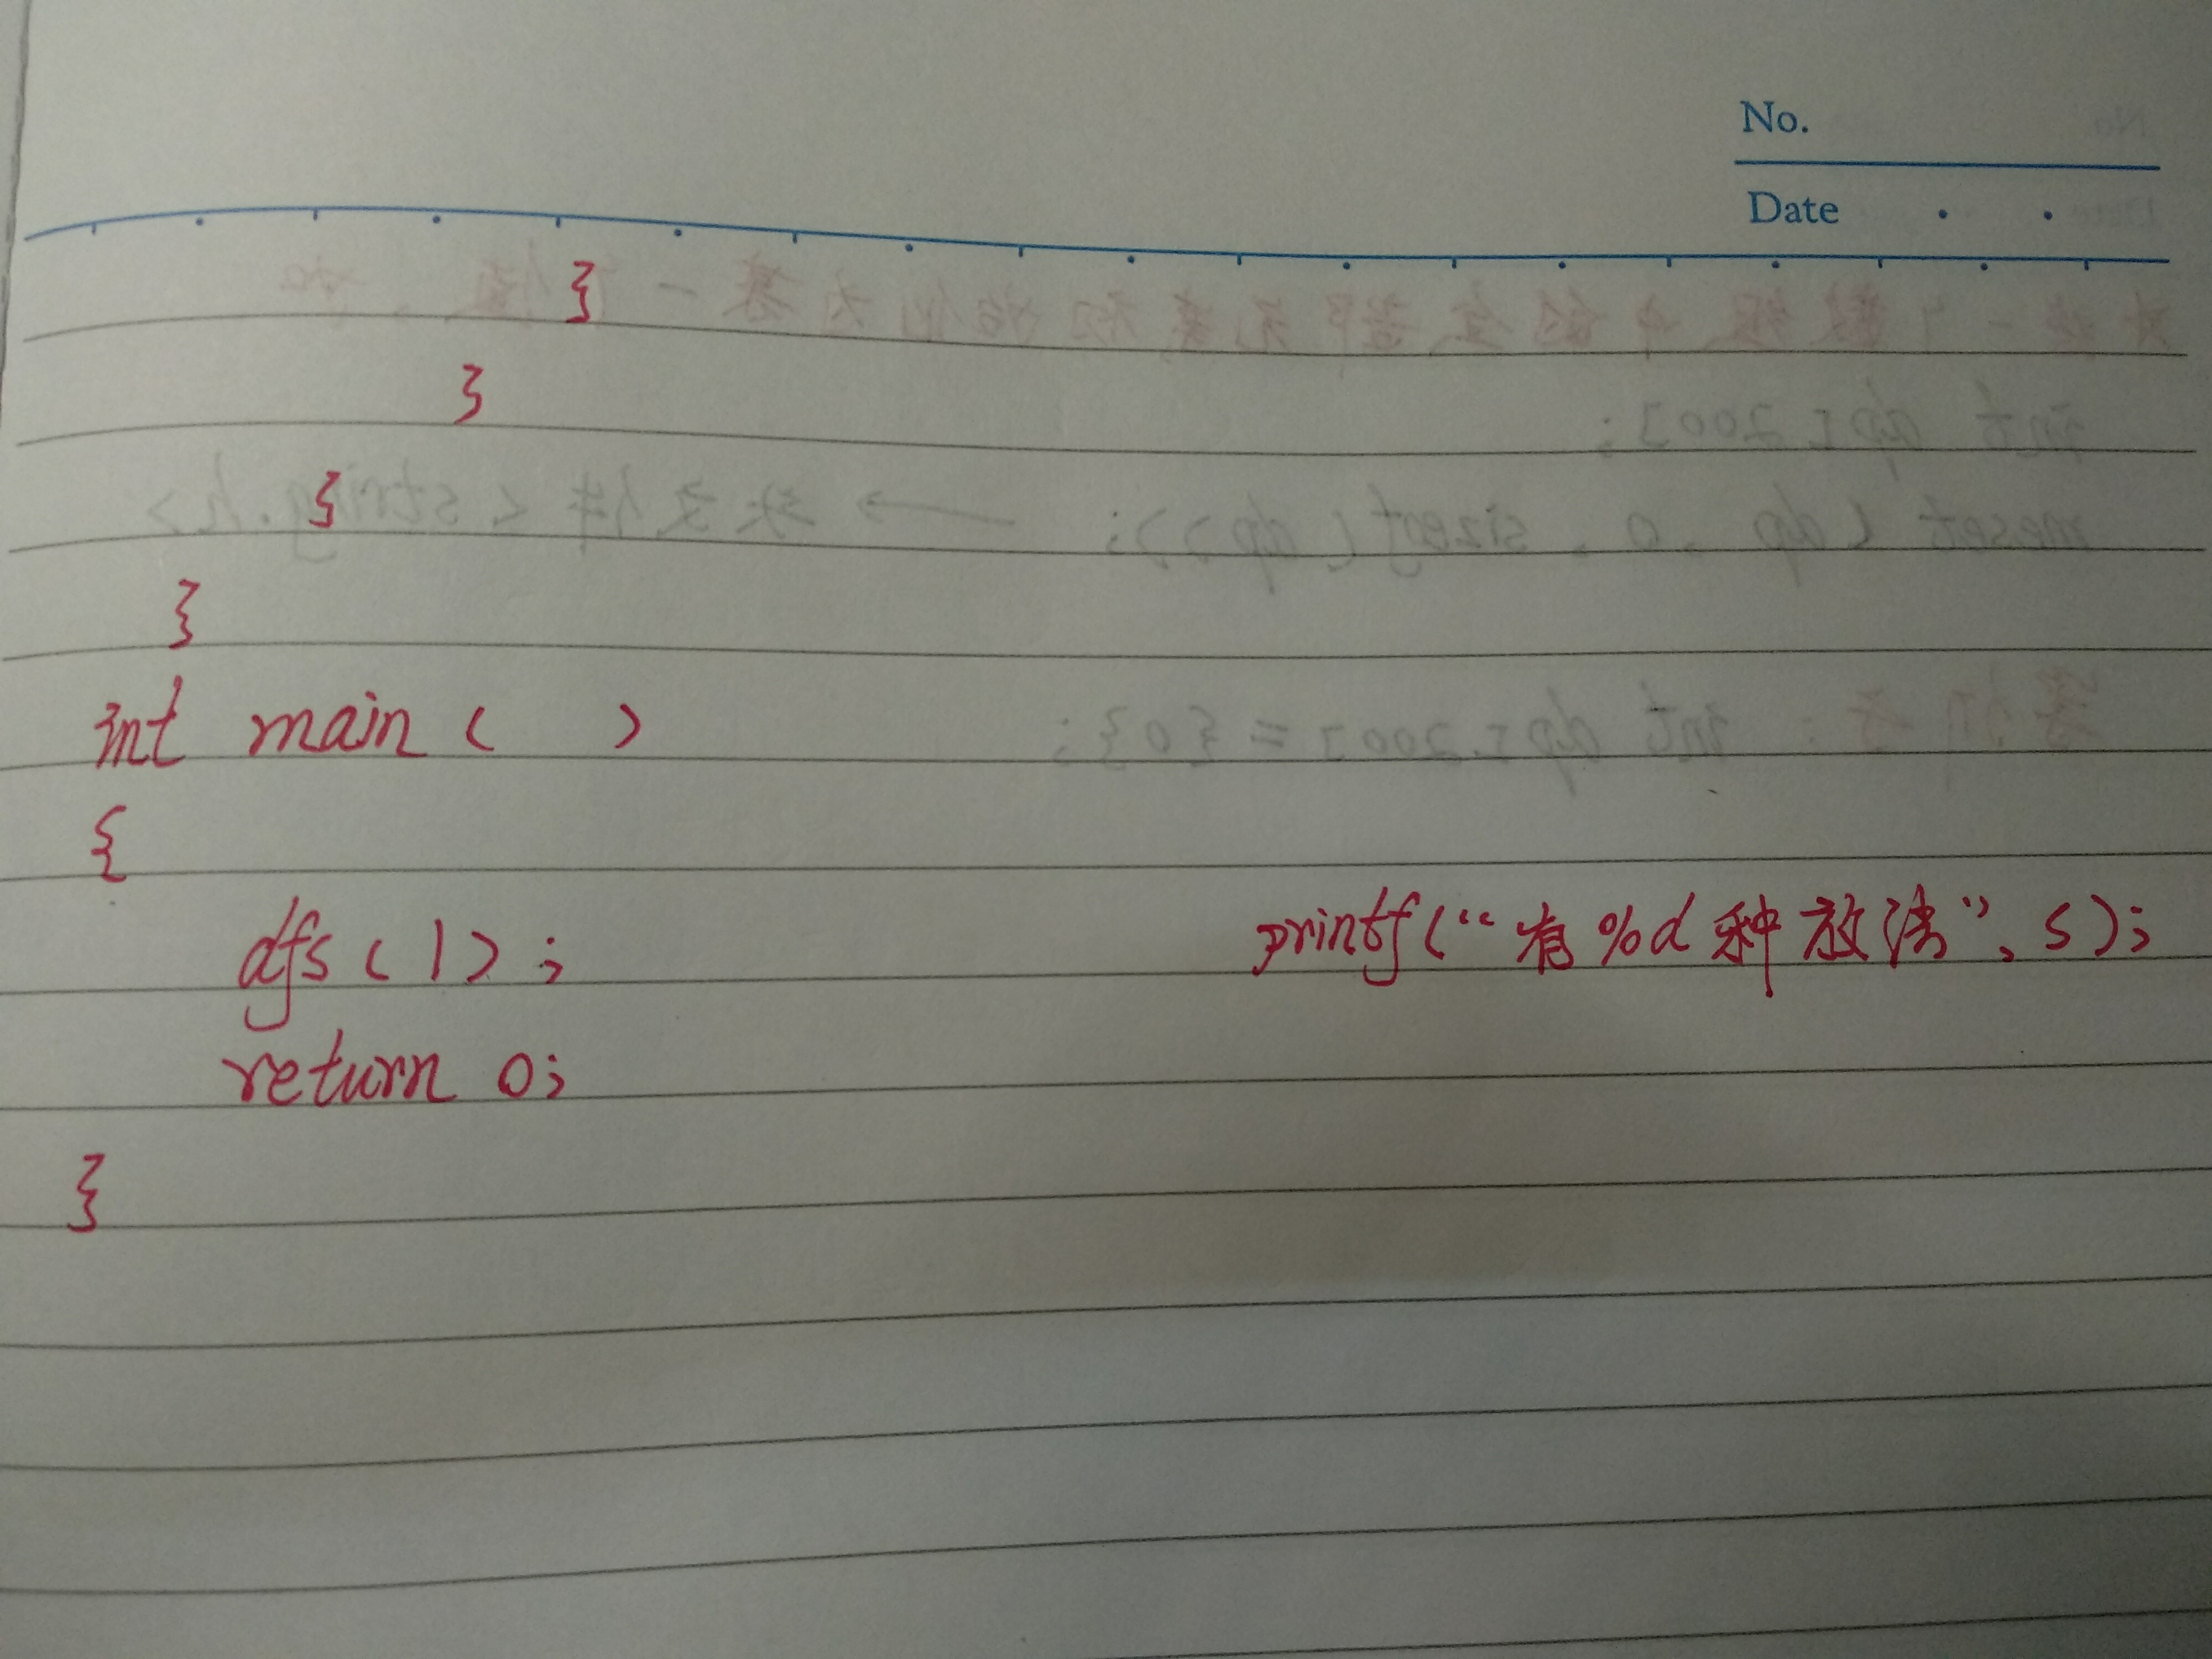 No.
Date
}
}
}
}
int main ( )
{
dfs(1); printf("有%d种放法", s);
return 0;
}